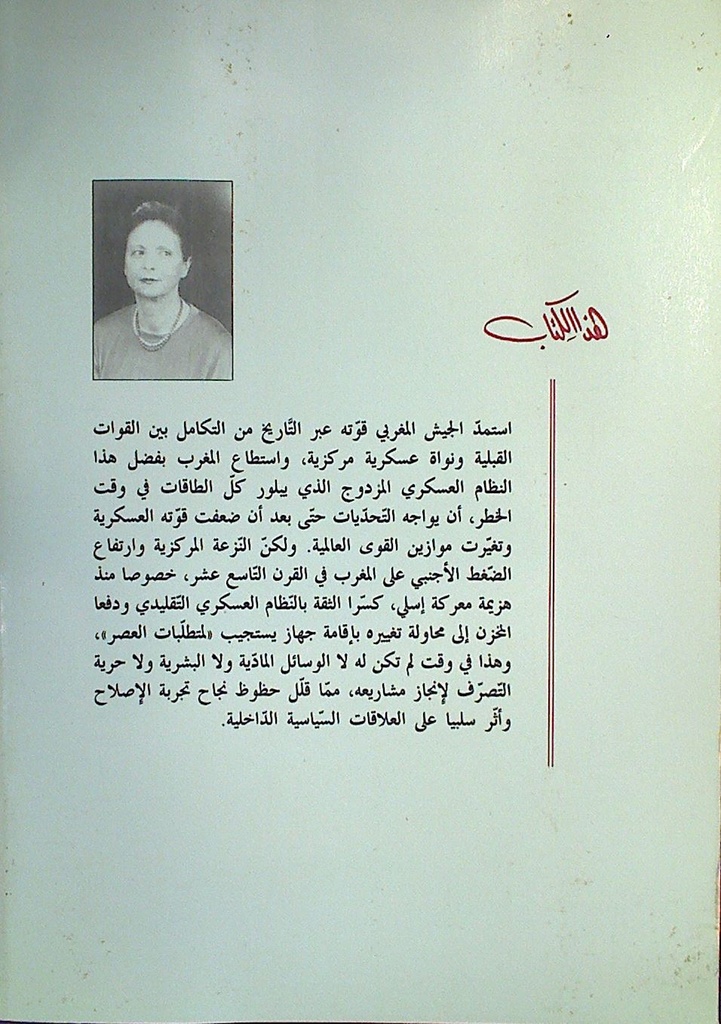 هذا الكتاب
استمدّ الجيش المغربي قوّته عبر التَّاريخ من التكامل بين القوات
القبلية ونواة عسكرية مركزية، واستطاع المغرب بفضل هذا
النظام العسكري المزدوج الذي يبلور كلّ الطاقات في وقت
الخطر، أن يواجه التّحدّيات حتّى بعد أن ضعفت قوّته العسكرية
وتغيّرت موازين القوى العالمية. ولكنّ النّزعة المركزية وارتفاع
الضّغط الأجنبي على المغرب في القرن التّاسع عشر، خصوصا منذ
هزيمة معركة إسلي، كسّرا الثقة بالنّظام العسكري التّقليدي ودفعا
المخزن إلى محاولة تغييره بإقامة جهاز يستجيب «لمتطلّبات العصر»،
وهذا في وقت لم تكن له لا الوسائل المادّية ولا البشرية ولا حرية
التّصرّف لإنجاز مشاريعه، ممّا قلّل حظوظ نجاح تجربة الإصلاح
وأثّر سلبيا على العلاقات السّياسية الدّاخلية.